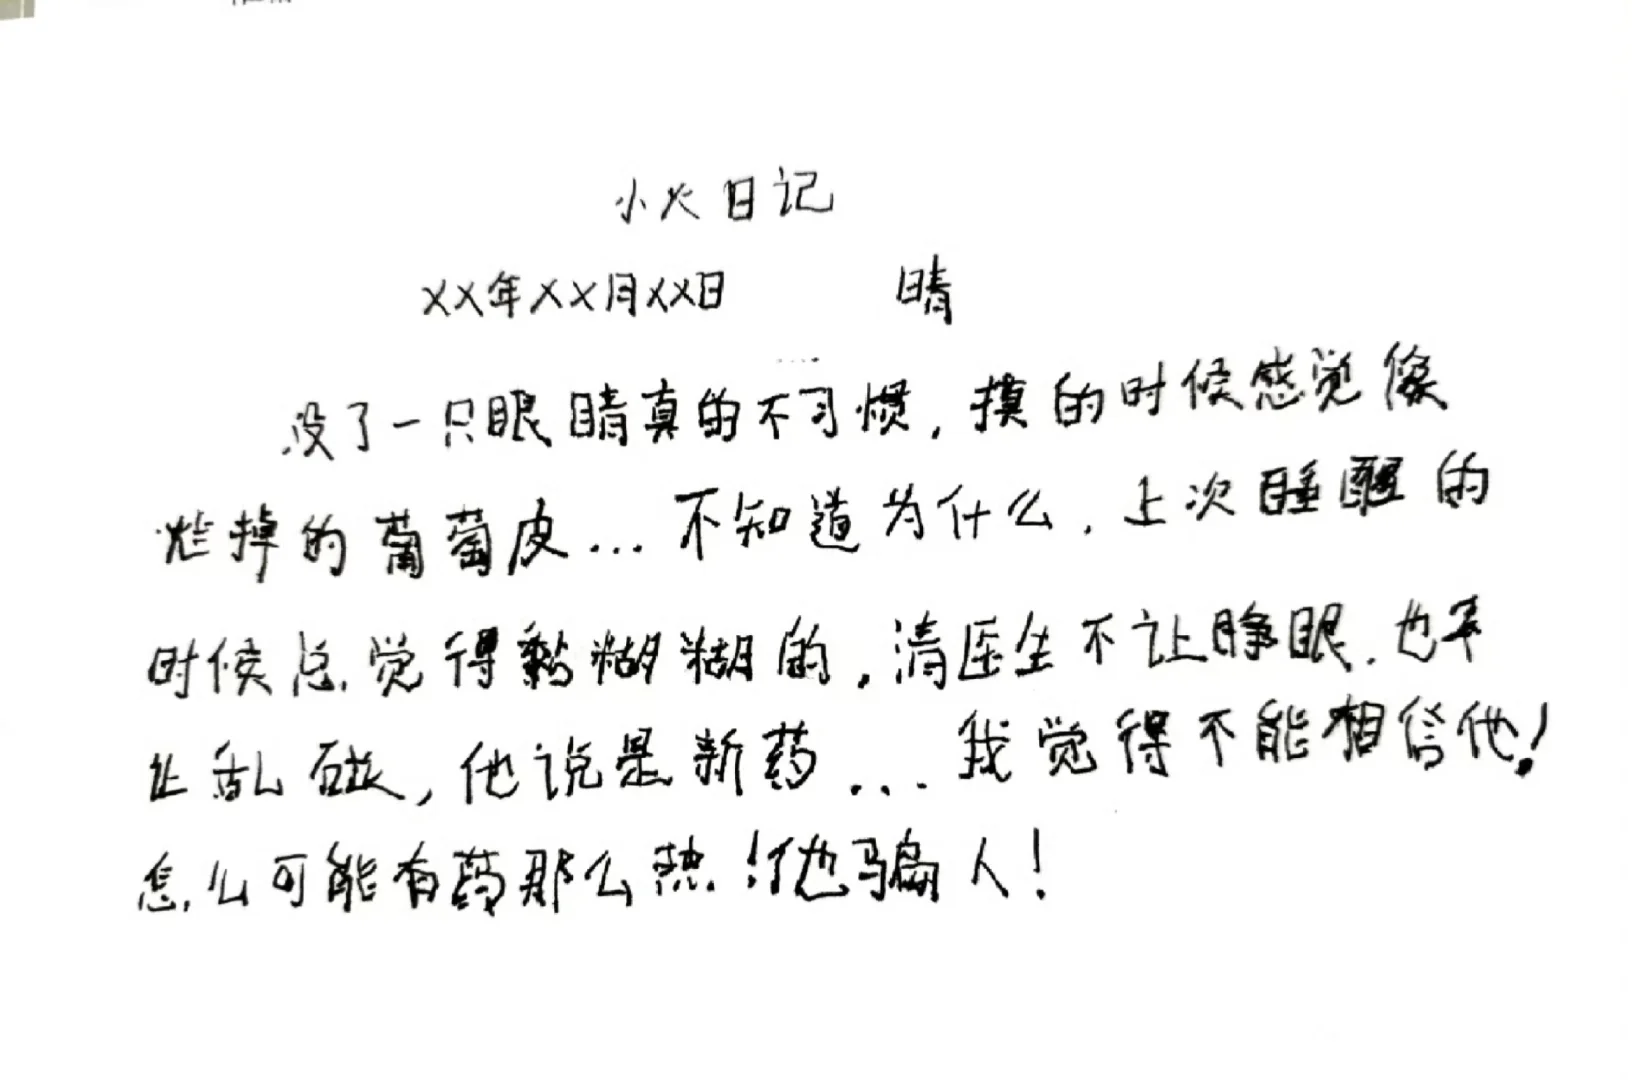 小火日记
XX年XX月XX日 晴
没了一只眼睛真的不习惯，摸的时候感觉像
烂掉的葡萄皮...不知道为什么，上次睡醒的
时候总觉得黏糊糊的，清医生不让睁眼，也不
让乱碰，他说是新药...我觉得不能相信他！
怎么可能有药那么热！他骗人！